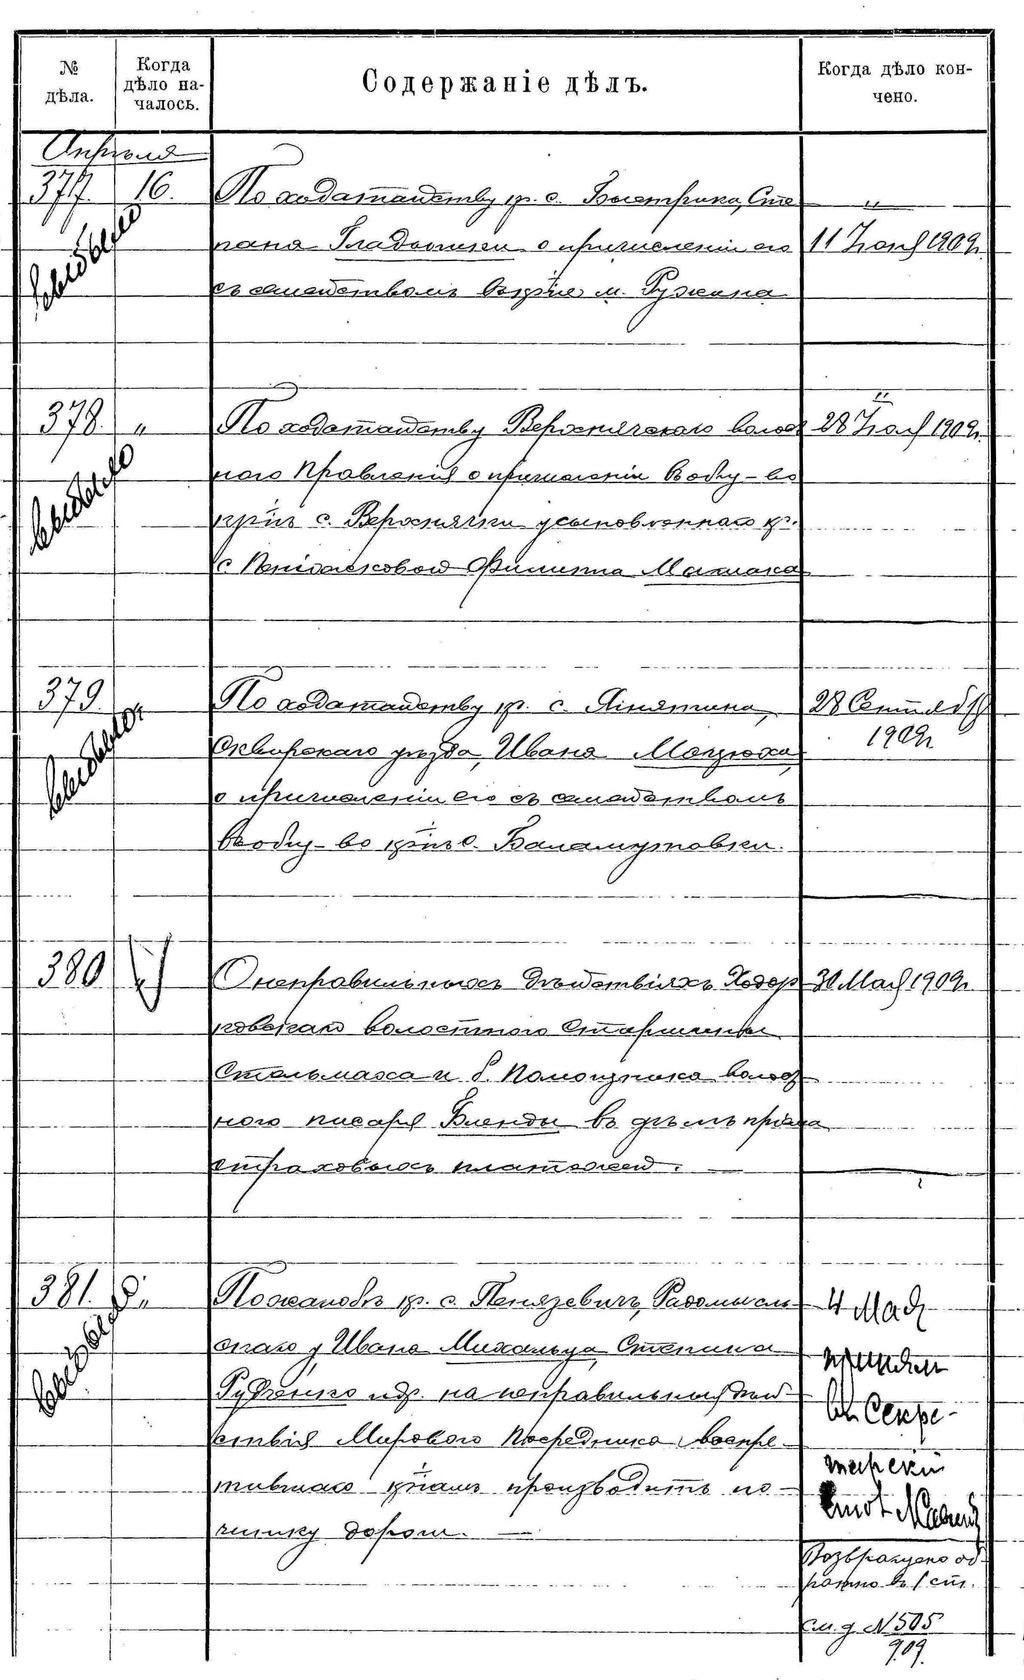 № дѣла.
Когда дѣло на-
чалось.
Содержаніе дѣлъ.
Когда дѣло кон-
чено.
Апрѣля
377. 16.
По ходатайству кр. с. Быстрика, Сте
пана о причисленіи его
съ семействомъ м. Ружина
"
11 Іюня 1909г.
выбыло
378. "
По ходатайству Верхнячского волост
ного Правленія о причисленіи въ общ-во
кр-нъ с. Верхнячки усыновленнаго кр.
с. Филиппа
"
28 1909г.
выбыло
379.
По ходатайству кр. с.
Сквирскаго уѣзда, Ивана Моцюка,
о причисленіи его съ семействомъ
въ общ-во кр-нъ с. Баламутовки.
28 Сентября
1909г
выбыло
380
О неправильныхъ дѣйствіяхъ Ходор
ковскаго волостного Старшины
Стельмаха и б. Помощника волост
ного писаря Бленды въ дѣлѣ пріема
страховыхъ платежей.
30 Мая 1909г
381. "
По жалобѣ кр. с. Пенязевичъ, Радомысль-
скаго у, Ивана Михальца, Степана
Рудченко и др. на неправильныя дѣй-
ствія Мирового Посредника воспре-
тившаго кр-намъ производить по-
чинку дороги. —
4 Мая
принялъ
въ Секре-
тарскій
столъ
выбыло
Возвращено об-
ратно въ 1 ст.
см. д №505
909.